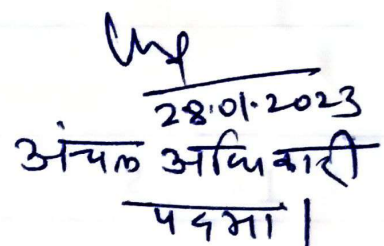 28.01.2023
अंचल अधिकारी
पदमा।